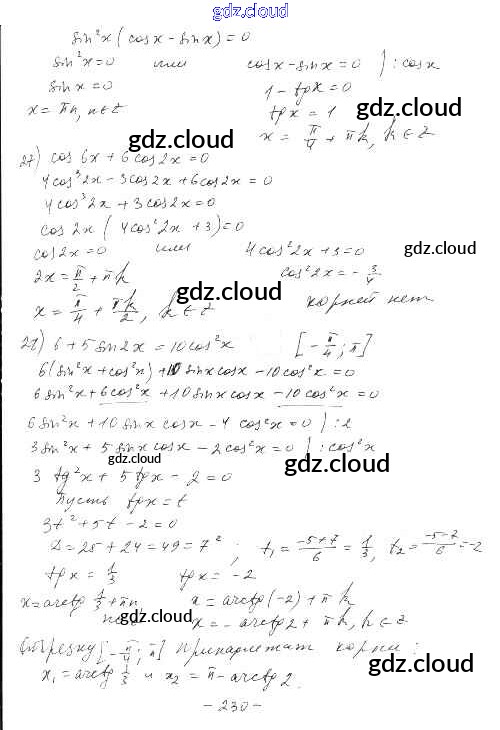 gdz.cloud
sin²x(cosx - sinx) = 0
sin²x = 0 или cosx - sinx = 0 ) : cosx
sinx = 0 1 - tgx = 0
x = πn, n ∈ Z tgx = 1
gdz.cloud
x = π/4 + πk, k ∈ Z
gdz.cloud
27) cos6x + 6cos2x = 0
4cos³2x - 3cos2x + 6cos2x = 0
4cos³2x + 3cos2x = 0
gdz.cloud
cos2x (4cos²2x + 3) = 0
cos2x = 0 или 4cos²2x + 3 = 0
gdz.cloud
2x = π/2 + πk cos²2x = -3/4
gdz.cloud
x = π/4 + πk/2, k ∈ Z корней нет
gdz.cloud
6 + 5sin2x = 10cos²x [-π/4; π]
6(sin²x + cos²x) + 10sinxcosx - 10cos²x = 0
6sin²x + 6cos²x + 10sinxcosx - 10cos²x = 0
6sin²x + 10sinxcosx - 4cos²x = 0 ) : 2
gdz.cloud
3sin²x + 5sinxcosx - 2cos²x = 0 ) : cos²x
gdz.cloud
gdz.cloud
3tg²x + 5tgx - 2 = 0
Пусть tgx = t
3t² + 5t - 2 = 0
D = 25 + 24 = 49 = 7²; t₁ = (-5+7)/6 = 1/3, t₂ = (-5-7)/6 = -2
gdz.cloud
tgx = 1/3 tgx = -2
x = arctg 1/3 + πn x = arctg(-2) + πk
gdz.cloud
x = -arctg2 + πk, k ∈ Z
Отрезку [-π/4; π] принадлежат корни:
gdz.cloud
x₁ = arctg 1/3 и x₂ = π - arctg2.
- 230 -